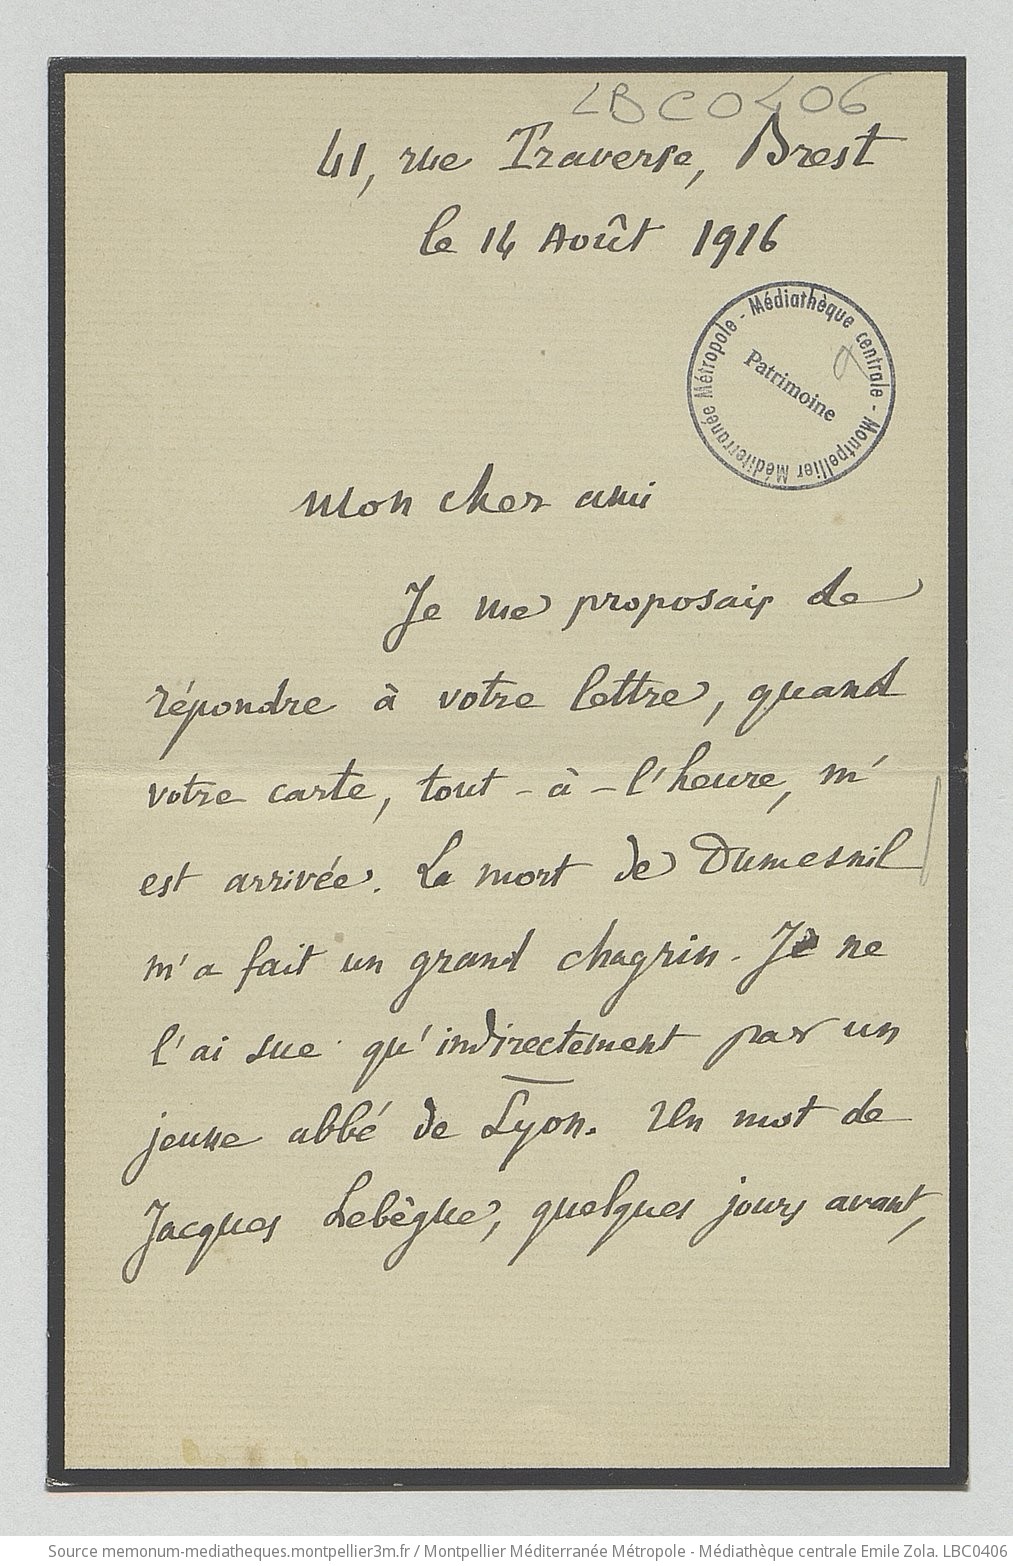 LBC0406
41, rue Traverse, Brest
le 14 Août 1916
Médiathèque centrale - Montpellier Méditerranée Métropole -
Patrimoine
Mon cher ami
Je me proposais de
répondre à votre lettre, quand
votre carte, tout-à-l'heure, m'
est arrivée. La mort de Dumesnil
m'a fait un grand chagrin. Je ne
l'ai sue qu'indirectement par un
jeune abbé de Lyon. Un mot de
Jacques Lebègue, quelques jours avant,
Source memonum-mediatheques.montpellier3m.fr / Montpellier Méditerranée Métropole - Médiathèque centrale Emile Zola. LBC0406